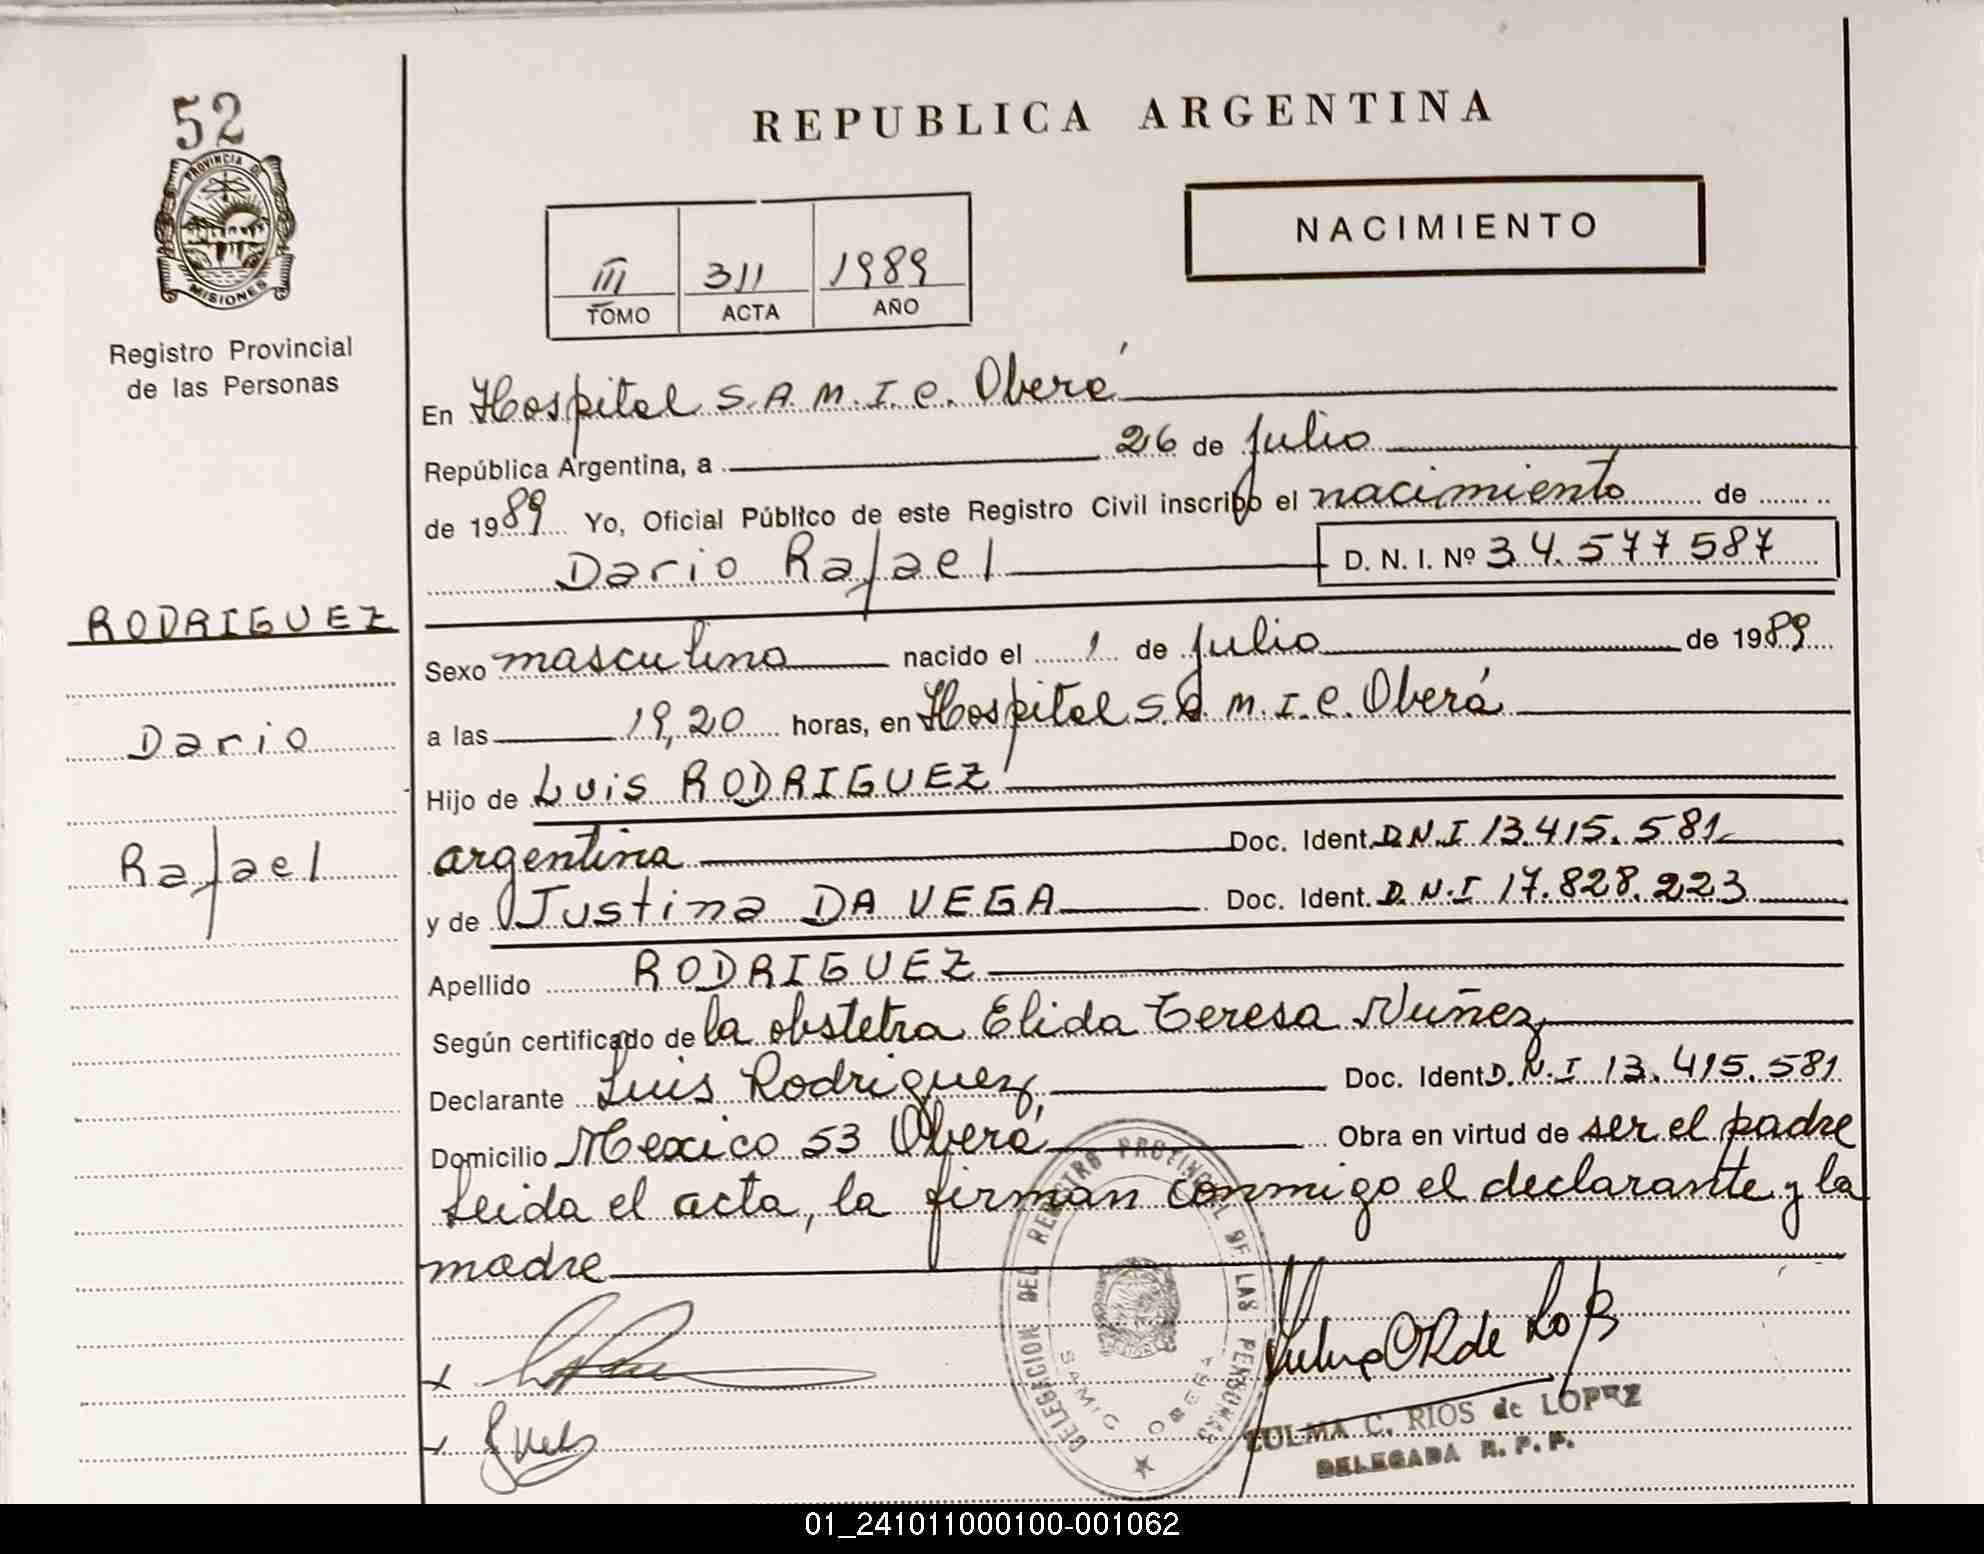 52
PROVINCIA DE
MISIONES
Registro Provincial
de las Personas
RODRIGUEZ
Dario
Rafael
REPUBLICA ARGENTINA
NACIMIENTO
III 311 1989
TOMO ACTA AÑO
En Hospital S.A.M.I.C. Oberá
República Argentina, a 26 de julio
de 1989 Yo, Oficial Público de este Registro Civil inscribo el nacimiento de
Dario Rafael D. N. I. Nº 34.577587
Sexo masculino nacido el 1 de julio de 1989
a las 19,20 horas, en Hospital S.A.M.I.C. Oberá
Hijo de Luis RODRIGUEZ
argentina Doc. Ident. D.N.I 13.415.581
y de Justina DA VEGA Doc. Ident. D.N.I 17.828.223
Apellido RODRIGUEZ
Según certificado de la obstetra Elida Teresa Nuñez
Declarante Luis Rodriguez Doc. Ident D.N.I 13.415.581
Domicilio Mexico 53 Oberá Obra en virtud de ser el padre
Leida el acta, la firman conmigo el declarante y la
madre
DELEGACION DEL REGISTRO PROVINCIAL DE LAS PERSONAS
SAMIC OBERA
ZULMA C. RIOS de LOPEZ
DELEGADA R. P. P.
01_241011000100-001062